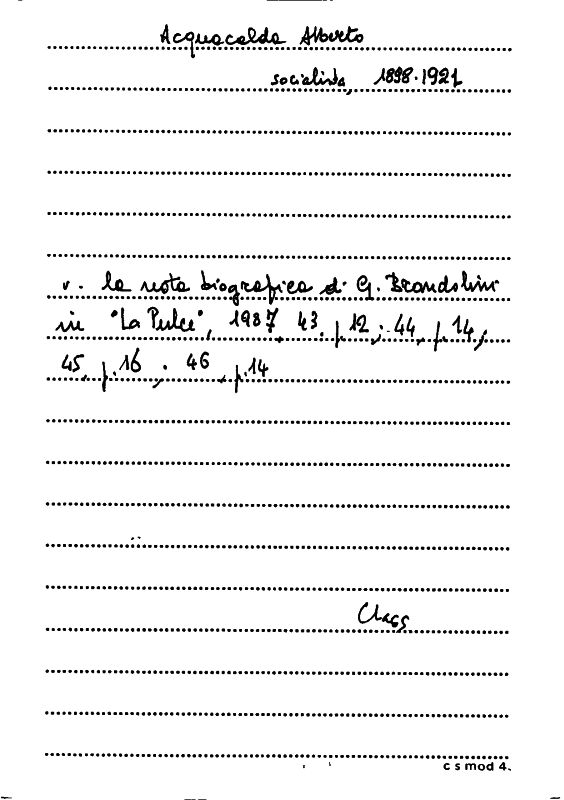 Acquacalda Alberto
socialista, 1898-1921
v. la nota biografica di G. Brandolini
in "La Pulce", 1987, 43, p.12; 44, p.14;
45, p.16; 46, p.14
Class
c s mod 4.